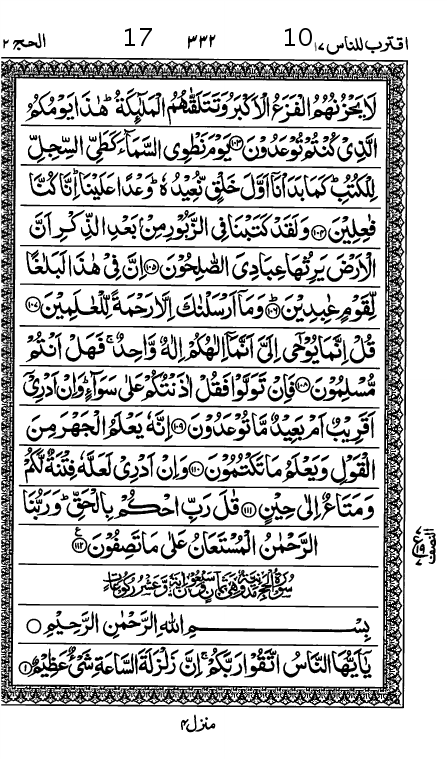 اقترب للناس ۱۷ 10 ۳۳۲ 17 الحج ۲
لَا يَحْزُنُهُمُ الْفَزَعُ الْاَكْبَرُ وَتَتَلَقّٰىهُمُ الْمَلٰٓئِكَةُ ؕ هٰذَا يَوْمُكُمُ
الَّذِىْ كُنْتُمْ تُوْعَدُوْنَ ۱۰۳ يَوْمَ نَطْوِى السَّمَآءَ كَطَىِّ السِّجِلِّ
لِلْكُتُبِ ؕ كَمَا بَدَاْنَاۤ اَوَّلَ خَلْقٍ نُّعِيْدُهٗ ؕ وَعْدًا عَلَيْنَا ؕ اِنَّا كُنَّا
فٰعِلِيْنَ ۱۰۴ وَلَقَدْ كَتَبْنَا فِى الزَّبُوْرِ مِنْۢ بَعْدِ الذِّكْرِ اَنَّ
الْاَرْضَ يَرِثُهَا عِبَادِىَ الصّٰلِحُوْنَ ۱۰۵ اِنَّ فِىْ هٰذَا لَبَلٰغًا
لِّقَوْمٍ عٰبِدِيْنَ ؕ ۱۰۶ وَمَاۤ اَرْسَلْنٰكَ اِلَّا رَحْمَةً لِّلْعٰلَمِيْنَ ۱۰۷
قُلْ اِنَّمَا يُوْحٰۤى اِلَىَّ اَنَّمَاۤ اِلٰهُكُمْ اِلٰهٌ وَّاحِدٌ ۚ فَهَلْ اَنْتُمْ
مُّسْلِمُوْنَ ۱۰۸ فَاِنْ تَوَلَّوْا فَقُلْ اٰذَنْتُكُمْ عَلٰى سَوَآءٍ ؕ وَاِنْ اَدْرِىْۤ
اَقَرِيْبٌ اَمْ بَعِيْدٌ مَّا تُوْعَدُوْنَ ۱۰۹ اِنَّهٗ يَعْلَمُ الْجَهْرَ مِنَ
الْقَوْلِ وَيَعْلَمُ مَا تَكْتُمُوْنَ ۱۱۰ وَاِنْ اَدْرِىْ لَعَلَّهٗ فِتْنَةٌ لَّكُمْ
وَمَتَاعٌ اِلٰى حِيْنٍ ۱۱۱ قٰلَ رَبِّ احْكُمْ بِالْحَقِّ ؕ وَرَبُّنَا
الرَّحْمٰنُ الْمُسْتَعَانُ عَلٰى مَا تَصِفُوْنَ ۱۱۲ ع
بِسْمِ اللّٰهِ الرَّحْمٰنِ الرَّحِيْمِ
يٰۤاَيُّهَا النَّاسُ اتَّقُوْا رَبَّكُمْ ۚ اِنَّ زَلْزَلَةَ السَّاعَةِ شَىْءٌ عَظِيْمٌ ۱
منزل ۴